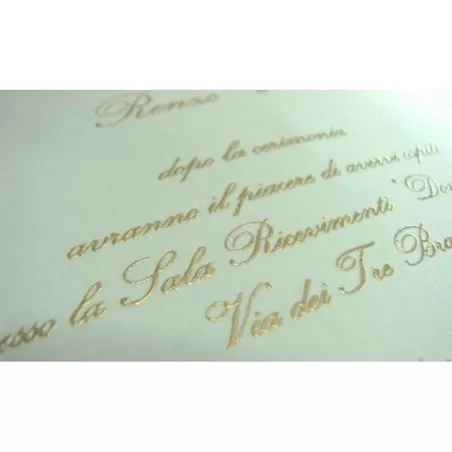 Renzo
dopo la cerimonia
avranno il piacere di avervi ospiti
esso la Sala Ricevimenti "Don
Via dei Tre Bra